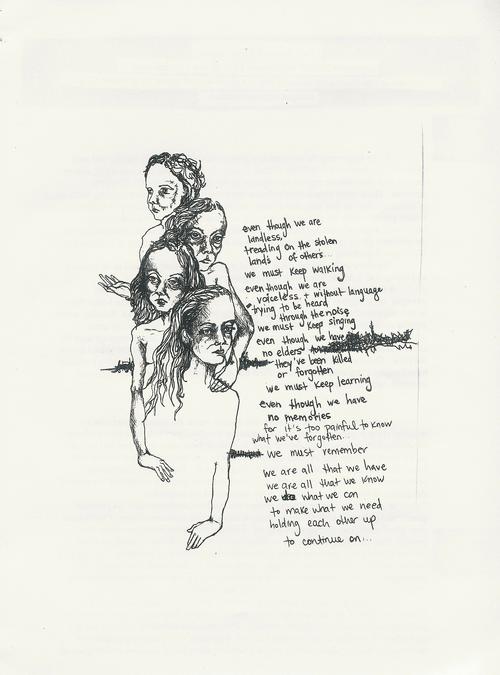 even though we are
landless,
treading on the stolen
lands of others...
we must keep walking
even though we are
voiceless + without language
trying to be heard
through the noise
we must keep singing
even though we have
no elders
they've been killed
or forgotten
we must keep learning
even though we have
no memories
for it's too painful to know
what we've forgotten...
we must remember
we are all that we have
we are all that we know
we do what we can
to make what we need
holding each other up
to continue on...